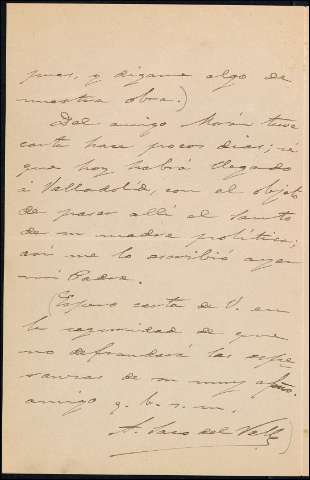 pues, y dígame algo de
nuestra obra.)
Del amigo Morán tuve
carta hace pocos dias; sé
que hoy habrá llegado
á Valladolid, con el objeto
de pasar allí el Santo
de su madre política;
así me lo escribió ayer
mi Padre.
(Espero carta de V. en
la seguridad de que
no defraudará las espe
ranzas de su muy afmo.
amigo q. b. s. m.
A. Saco del Valle)